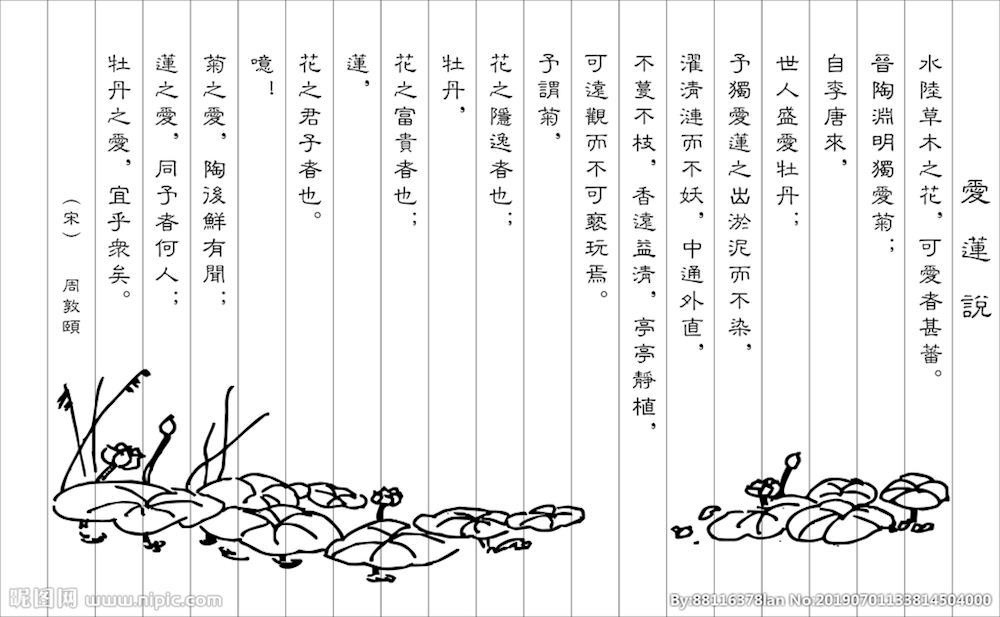 愛蓮說
水陸草木之花，可愛者甚蕃。
晉陶淵明獨愛菊；
自李唐來，
世人盛愛牡丹；
予獨愛蓮之出淤泥而不染，
濯清漣而不妖，中通外直，
不蔓不枝，香遠益清，亭亭靜植，
可遠觀而不可褻玩焉。
予謂菊，
花之隱逸者也；
牡丹，
花之富貴者也；
蓮，
花之君子者也。
噫！
菊之愛，陶後鮮有聞；
蓮之愛，同予者何人；
牡丹之愛，宜乎衆矣。
（宋） 周敦頤
昵图网 www.nipic.com
By:88116378lan No:20190701133814504000